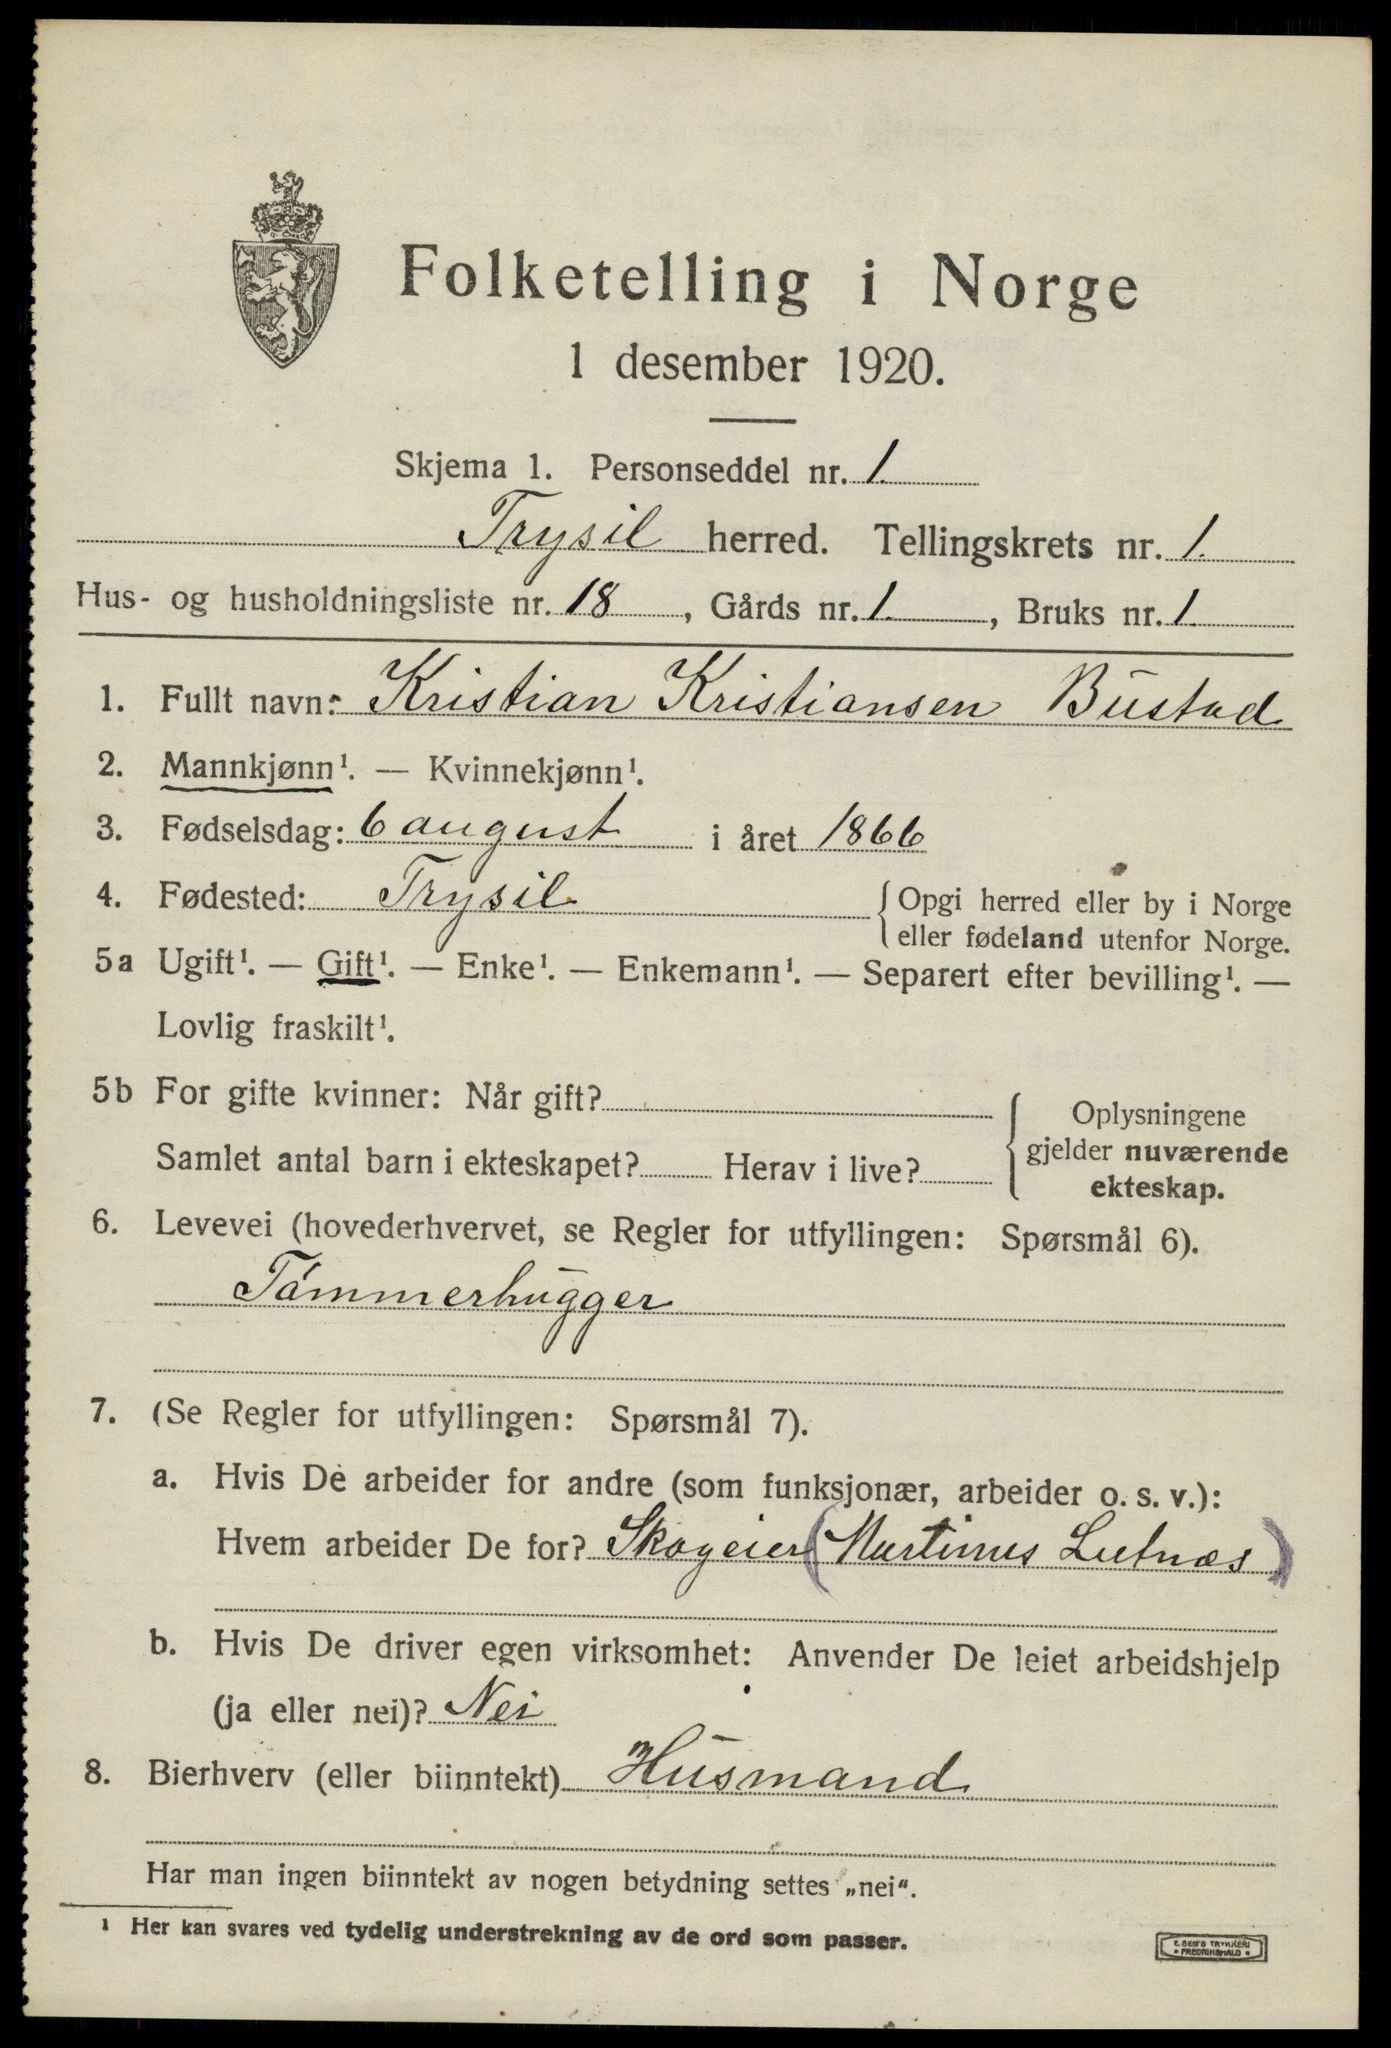 Folketelling i Norge
1 desember 1920.
Skjema 1. Personseddel nr. 1.
Trysil herred. Tellingskrets nr. 1.
Hus- og husholdningsliste nr. 18, Gårds nr. 1., Bruks nr. 1.
1. Fullt navn: Kristian Kristiansen Bustad
2. Mannkjønn¹. — Kvinnekjønn¹.
3. Fødselsdag: 6 august i året 1866
4. Fødested: Trysil {Opgi herred eller by i Norge
eller fødeland utenfor Norge.
5a Ugift¹. — Gift¹. — Enke¹. — Enkemann¹. — Separert efter bevilling¹. —
Lovlig fraskilt¹.
5b For gifte kvinner: Når gift?
Samlet antal barn i ekteskapet? Herav i live?
{Oplysningene
gjelder nuværende
ekteskap.
6. Levevei (hovederhvervet, se Regler for utfyllingen: Spørsmål 6).
Tømmerhugger
7. (Se Regler for utfyllingen: Spørsmål 7).
a. Hvis De arbeider for andre (som funksjonær, arbeider o. s. v.):
Hvem arbeider De for? Skogeier (Martinus Lutnæs)
b. Hvis De driver egen virksomhet: Anvender De leiet arbeidshjelp
(ja eller nei)? Nei
8. Bierhverv (eller biinntekt) Husmand
Har man ingen biinntekt av nogen betydning settes „nei".
¹ Her kan svares ved tydelig understrekning av de ord som passer.
E SEM'S TRYKKERI
• FREDRIKSHALD •